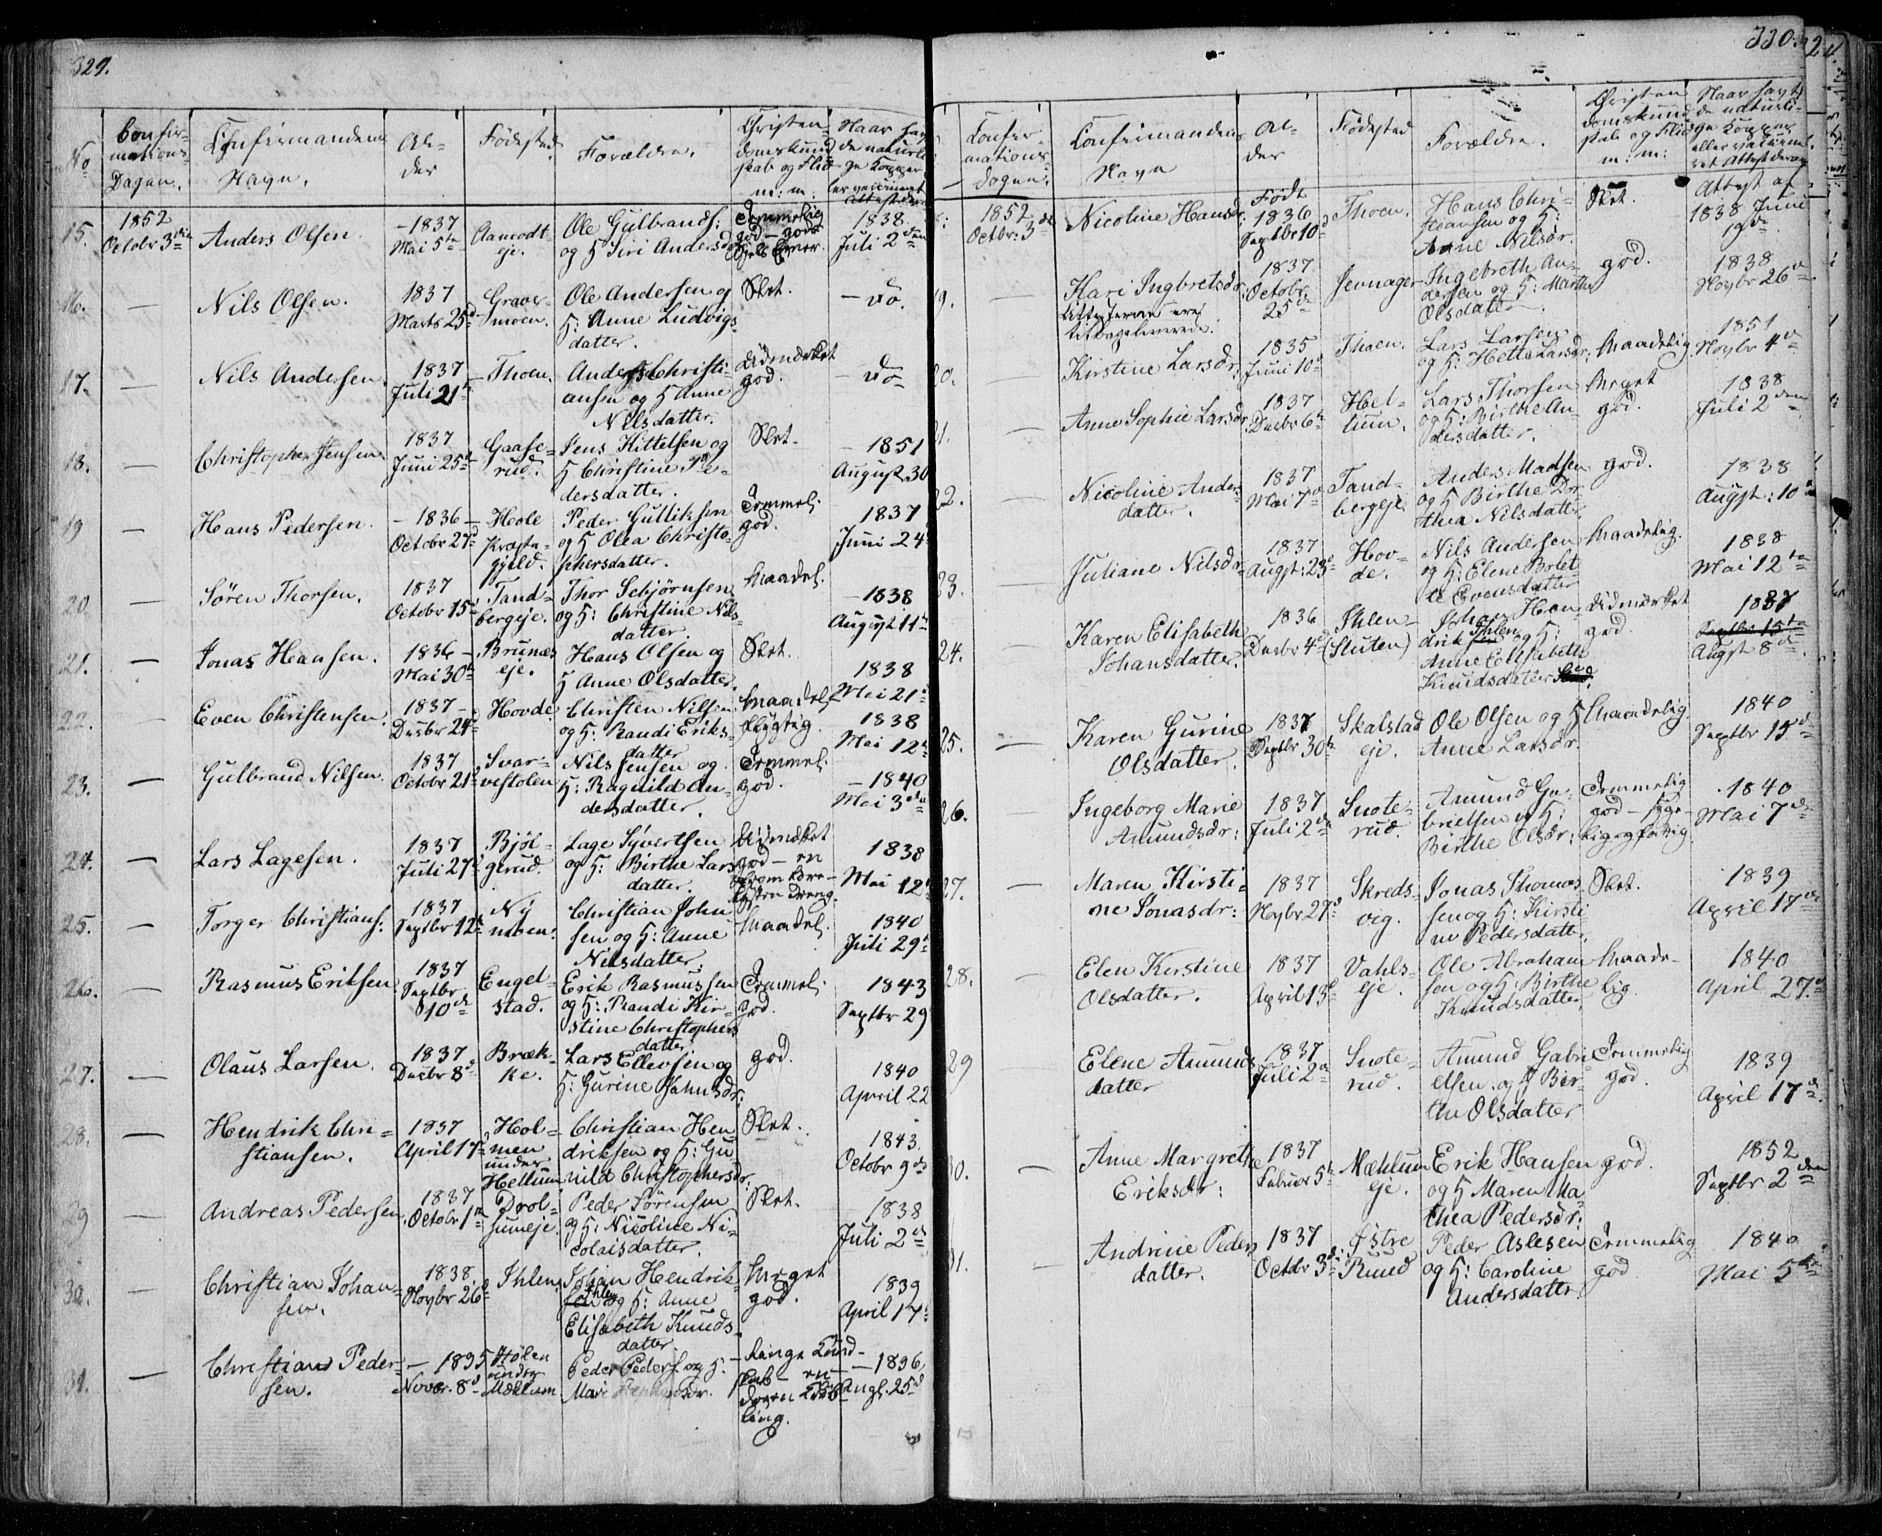 329.
No
Confir-
mations
Dagen.
Confirmandens
Navn.
Al-
der
Fødested
Forældre.
Christen-
domskund
skab og Flid
m: m:
Naar havt
de naturli
ge Kopper
er vaccineret
Attest derom
15.
1852
Octobr 3die
Anders Olsen.
1837
Mai 5te
Aamodt
eje.
Ole Gulbrands:
og H Siri Andersdr
Temmelig
god
1838
Juli 2den
16.
Nils Olsen.
1837
Marts 25d
Graver-
moen.
Ole Andersen og
H: Anne Ludvigs
datter.
Slet.
do.
17.
Nils Andersen.
1837
Juli 21
Thoen.
Anders Christi-
ansen og H Anne
Nilsdatter.
Udmærket
god.
do
18.
Christopher Jensen
1837
Juni 25
Gaase-
rud.
Jens Kittelsen og
H Christine Pe-
dersdatter.
Slet.
1851
August 30
19
Hans Pedersen.
1836
Octobr 27
Hole
Præste-
gjeld.
Peder Gulliksen
og H Olea Christo-
phersdatter.
Temmel:
god.
1837
Juni 24
20.
Søren Thorsen.
1837
Octobr 15
Tand-
bergeje.
Thor Sebjørnsen
og H: Christine Nils-
datter.
Maadel.
1838
August 11
21.
Jonas Hansen.
1836
Mai 30
Brunæs
eje.
Hans Olsen og
H Anne Olsdatter.
Slet.
1838
Mai 21
22.
Even Christensen.
1837
Decbr 24
Hovde
Christen Nilsen
og H: Randi Eriks-
datter
Maadel
flygtig.
1838
Mai 12
23.
Gulbrand Nilsen.
1837
Octobr 21
Svar-
vestolen
Nils Jensen og
H: Ragnild An-
dersdatter.
Temmel:
god.
1840
Mai 3
24.
Lars Lagesen.
1837
Juli 27
Bjöl-
gerud.
Lage Syvertsen
og H: Birthe Lars
datter.
Udmærket
god - en
Dreng.
1838
Mai 12
25.
Torger Christians:
1837
Septbr 12
Ny
moen.
Christian John
sen og H: Anne
Nilsdatter.
Maadel.
1840
Juli 29
26.
Rasmus Eriksen
1837
Septbr
10de
Engel-
stad.
Erik Rasmussen
og H: Randi Kir-
stine Christophers
datter.
Temmel:
god.
1843
Septbr 29
27.
Olaus Larsen.
1837
Decbr 8
Bræk-
ke.
Lars Ellevsen og
H: Gurine Hansdr:
god.
1840
April 22
28.
Hendrik Chri-
stiansen.
1837
April 17
Hol-
men
under
Hellum
Christian Hen
driksen og H: Gu-
nild Christophersdr.
Slet.
1843.
Octobr 9de
29
Andreas Pedersen
1837
Octobr 1
Drol-
sumeje.
Peder Sørensen
og H: Nicoline Ni-
colaisdatter.
Slet.
1838
Juli 2
30.
Christian Johan-
sen.
1838.
Novbr 26
Ihlen
Johan Hendrik
Ihlen og H: Anne
Elisabeth Knuds
datter.
Meget
god.
1839
April 17
31.
Christian Peder-
sen.
1835
Novbr. 8
Hølen
under
Mæhlum
Peder Peders: og H:
Mari
Ringe Kund-
skab - en
doven Yng-
ling.
1836
Aug. 25
330.
Confir-
mations-
dagen.
Confirmandens
Navn
Al-
der
Fødested
Forældre.
Christen
domskund
skab og Flid
m: m:
Naar havt
de naturli-
ge Kopper
eller vaccine-
ret Attest derom
18.
1852
Octbr: 3die
Nicoline Hansdr:
Født
1836
Septbr 10
Thoen.
Hans Chri-
stiansen og H:
Anne Nilsdr.
Slet.
Attest af
1838 Juni
9de
19.
Kari Ingbretsdr
Attesterne ere
tilbageleverede.
1837
Octobr
25
Jevnager
Ingebreth An-
dersen og H: Marthe
Olsdatter.
god.
1838
Novbr 26
20.
Kirstine Larsdr:
1835
Juni 10
Thoen.
Lars Larsen
og H: Hette Larsdr.
Maadelig
1851
Novbr 4
21.
Anne Sophie Larsdr
1837
Decbr 6
Hel-
lum.
Lars Thorsen
og H: Birthe An
dersdatter.
Meget
god.
1838
Juli 2den
22.
Nicoline Anders
datter.
1837
Mai 7
Tand-
bergeje.
Anders Madsen
og H Birthe Do-
thea Nilsdatter
god.
1838
Augst: 10
23.
Juliane Nilsdr
1837
Augst: 23
Hov-
de.
Nils Andersen
og H: Elene Bolet-
te Evensdatter
Maadelig.
1838
Mai 12
24.
Karen Elisabeth
Johansdatter.
1836
Decbr 4
Ihlen
(Sluten)
Johan Hen-
drik Ihlen og H:
Anne Elisabeth
Knudsdatter
Udmærket
god.
1837
Septbr 15
Augst 8
25.
Karen Gurine
Olsdatter.
1837
Septbr 30
Skalstad
eje.
Ole Olsen og H
Anne Larsdr.
Maadelig
1840
Septbr 15
26.
Ingeborg Marie
Amundsdr:
1837
Juli 2
Snote-
rud.
Amund Ga-
brielsen og H:
Birthe Olsdr:
Temmelig
god - syge-
lig og fattig.
1840
Mai 7
27.
Maren Kirsti-
ne Jonasdr:
1837
Novbr 27
Skreds-
vig.
Jonas Thomas-
sen og H: Kirsti
ne Pedersdatter.
Slet.
1839
April 17
28.
Elen Kirstine
Olsdatter.
1837
April 13
Vahls-
eje.
Ole Abraham
sen og H: Birthe
Knudsdatter
Maade-
lig.
1840
April 27.
29
Elene Amunds
datter
1837
Juli 2
Snote-
rud.
Amund Gabri
elsen og H Bir-
the Olsdatter
Temmelig
god.
1839
April 17
30.
Anne Margrethe
Eriksdr:
1837
Februar 5
Mæhlum
eje.
Erik Hansen
og H Maren Ma
thea Pedersdr.
god.
1852
Septbr 2den
31.
Andrine Peders
datter.
1837
Octobr 3
Østre
Ruud
Peder Aslesen
og H: Caroline
Andersdatter
Temmelig
god
1840
Mai 5te